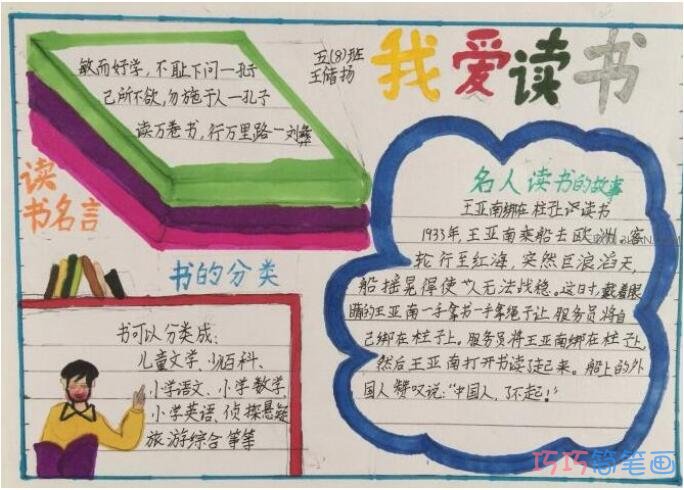 我爱读书
五(8)班
王储扬
敏而好学,不耻下问一孔子
己所不欲,勿施于人一孔子
读万卷书,行万里路一刘彝
读
书名言
书的分类
书可以分类成:
儿童文学、少儿百科、
小学语文、小学数学、
小学英语、侦探悬疑
旅游综合等等
名人读书的故事
王亚南绑在柱子上读书
1933年,王亚南乘船去欧洲。客
轮行至红海,突然巨浪滔天,
船摇晃得使人无法战稳。这日寸,戴着眼
睛的王亚南一手拿书一手拿绳子让服务员将自
己绑在柱子上。服务员将王亚南绑在柱子上,
然后王亚南打开书读了起来。船上的外
国人赞叹说:"中国人,了不起!"
巧巧简笔画